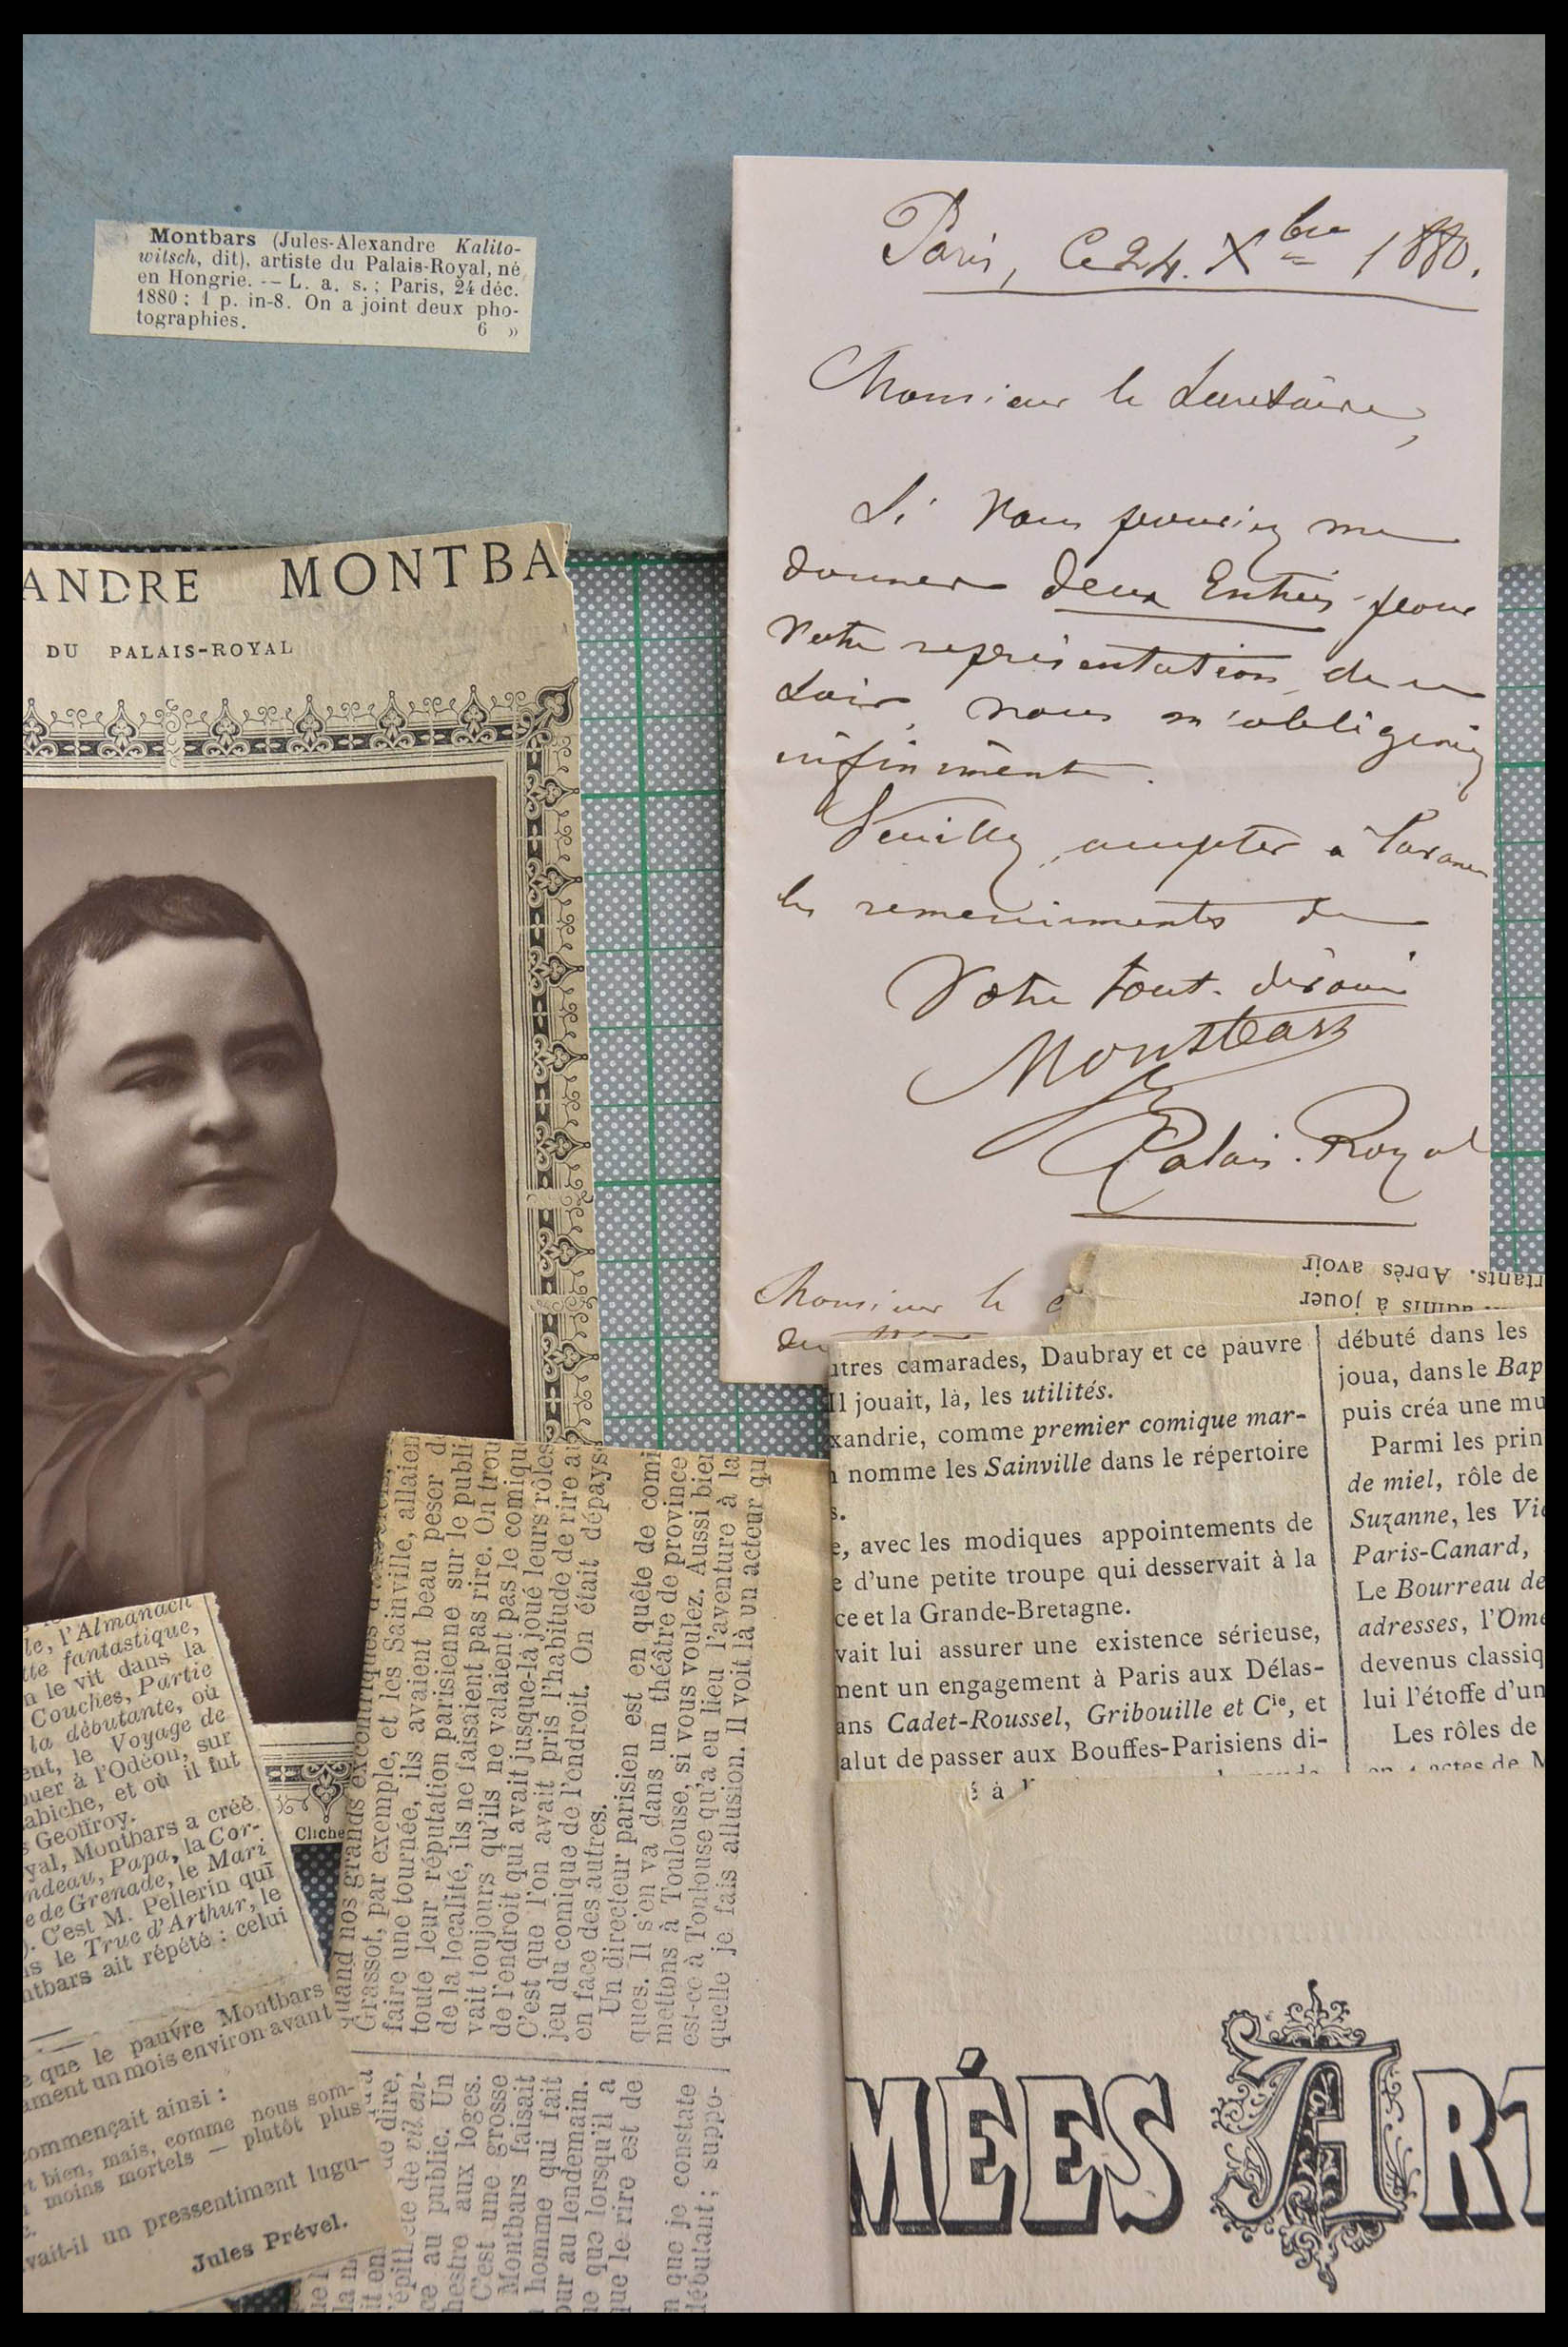 Montbars (Jules-Alexandre Kalito-
witsch, dit), artiste du Palais-Royal, né
en Hongrie. -- L. a. s. ; Paris, 24 déc.
1880 ; 1 p. in-8. On a joint deux pho-
tographies. 6 »
Paris, Ce 24. Xbre 1880.
Monsieur le Secrétaire,
Si vous pouviez me
donner deux Entrées pour
votre représentation de ce
soir, vous m'obligeriez
infiniment.
Veuillez accepter à l'avance
les remerciements de
Votre tout dévoué
Montbars
Palais-Royal
Monsieur le
ANDRE MONTBA
DU PALAIS-ROYAL
Cliché
rtants. Après avoir
admis à jouer
utres camarades, Daubray et ce pauvre
Il jouait, là, les utilités.
xandrie, comme premier comique mar-
nomme les Sainville dans le répertoire
s.
e, avec les modiques appointements de
e d'une petite troupe qui desservait à la
ce et la Grande-Bretagne.
vait lui assurer une existence sérieuse,
ment un engagement à Paris aux Délas-
ans Cadet-Roussel, Gribouille et Cie, et
alut de passer aux Bouffes-Parisiens di-
débuté dans les
joua, dans le Bap
puis créa une mu
Parmi les prin
de miel, rôle de
Suzanne, les Vi
Paris-Canard,
Le Bourreau de
adresses, l'Ome
devenus classiq
lui l'étoffe d'un
Les rôles de
en 4 actes de M
é à
MÉES ART
quand nos grands excentriques
Grassot, par exemple, et les Sainville, allaien
faire une tournée, ils avaient beau peser d
toute leur réputation parisienne sur le publi
de la localité, ils ne faisaient pas rire. On trou
vait toujours qu'ils ne valaient pas le comique
de l'endroit qui avait jusque-là joué leurs rôles
C'est que l'on avait pris l'habitude de rire au
jeu du comique de l'endroit. On était dépays
en face des autres.
Un directeur parisien est en quête de comi
ques. Il s'en va dans un théâtre de province
mettons à Toulouse, si vous voulez. Aussi bien
est-ce à Toulouse qu'a eu lieu l'aventure à la
quelle je fais allusion. Il voit là un acteur qu
de dire,
de vil en-
ce au public. Un
hestre aux loges.
C'est une grosse
Montbars faisait
homme qui fait
our au lendemain.
ue que lorsqu'il a
que le rire est de
n que je constate
débutant ; suppo-
le, l'Almanach
tte fantastique,
n le vit dans la
Couches, Partie
la débutante, où
ent, le Voyage de
ouer à l'Odéon, sur
abiche, et où il fut
s Geoffroy.
yal, Montbars a créé
ndeau, Papa, la Cor-
e de Grenade, le Mari
). C'est M. Pellerin qui
is le Truc d'Arthur, le
ntbars ait répété : celui
e que le pauvre Montbars
ament un mois environ avant
ommençait ainsi :
t bien, mais, comme nous som-
moins mortels — plutôt plus
vait-il un pressentiment lugu-
Jules Prével.